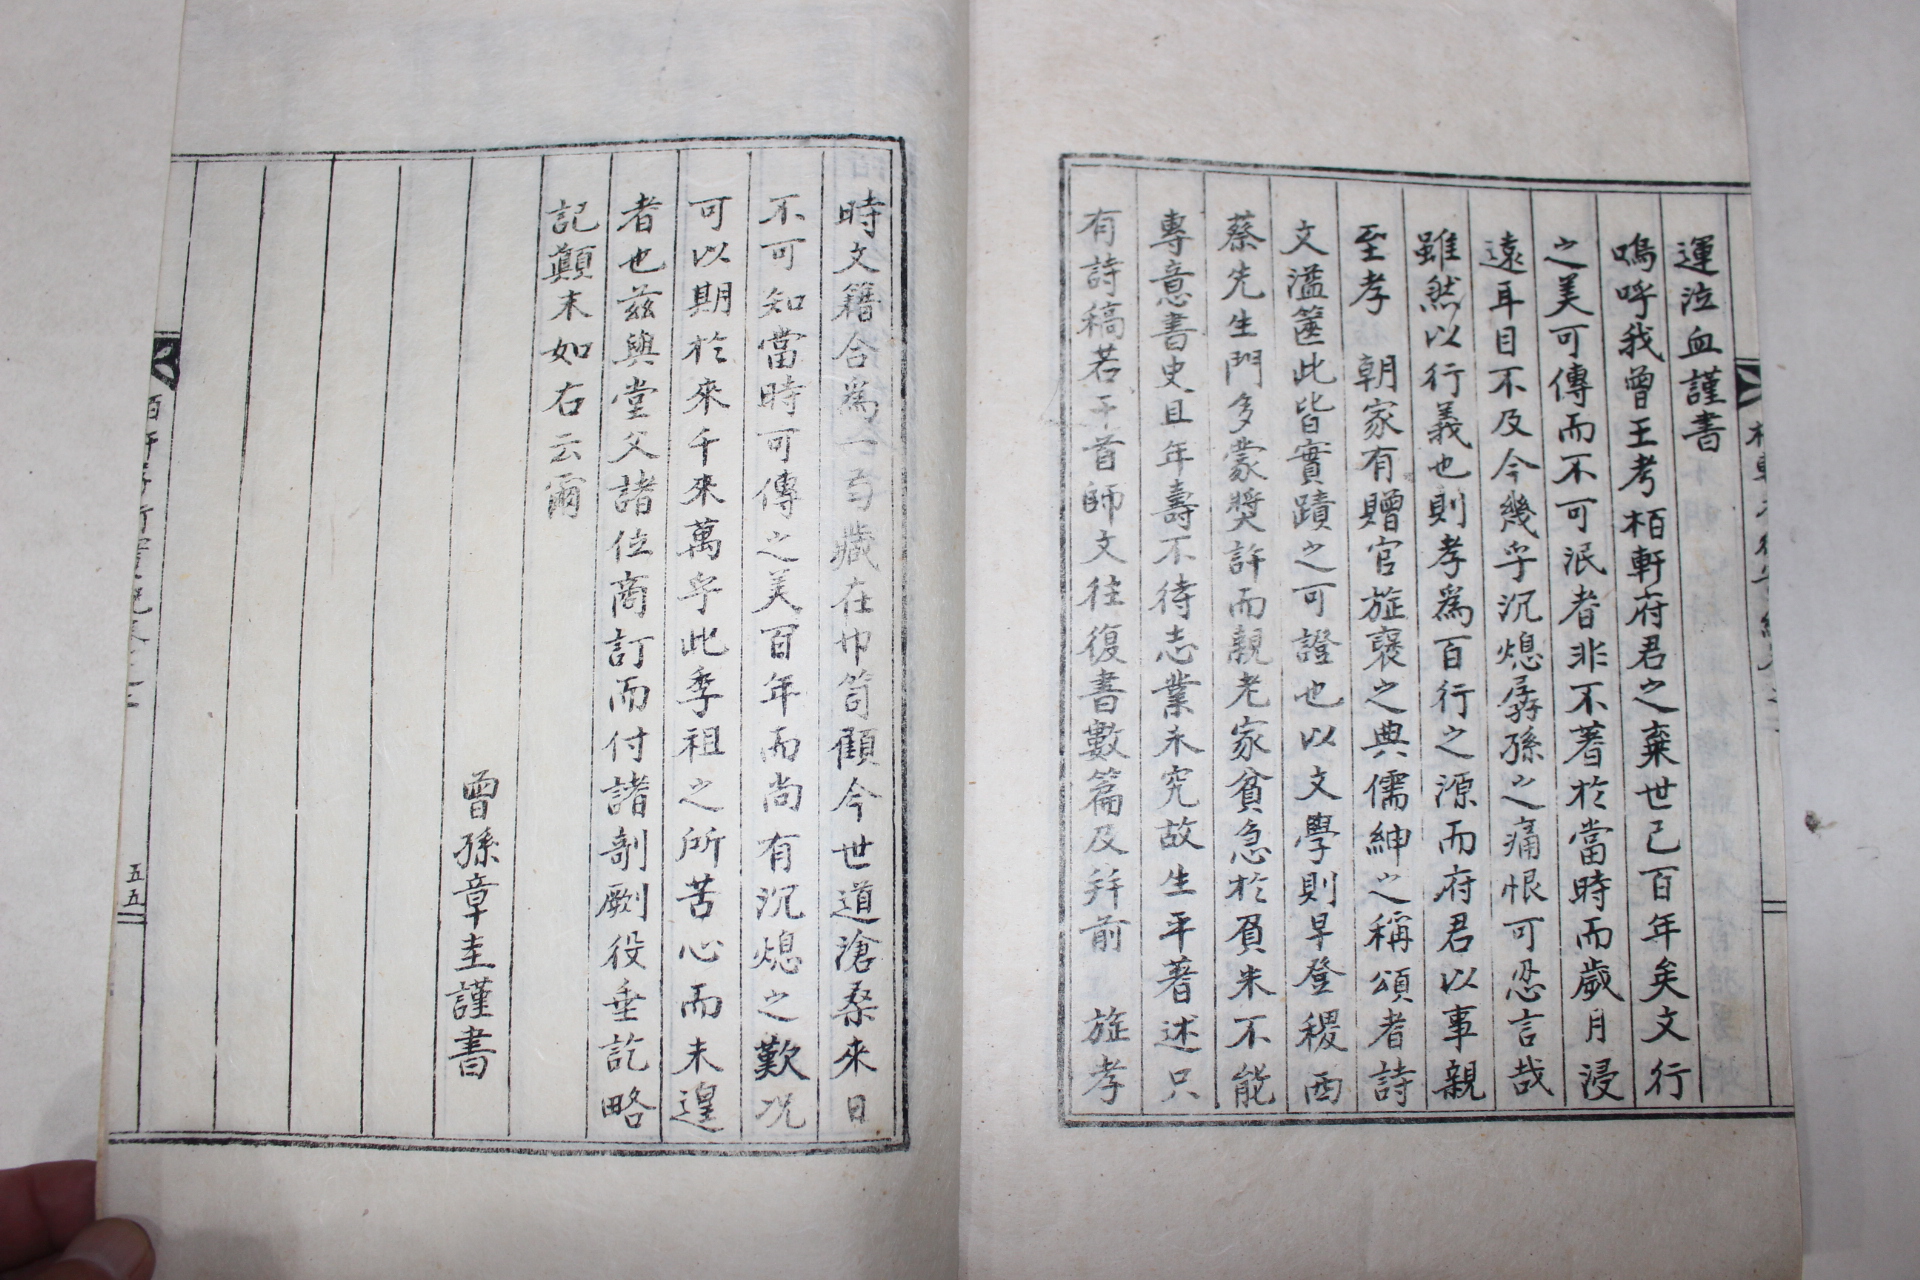 運泣血謹書
嗚呼我曾王考栢軒府君之棄世已百年矣文行
之美可傳而不可泯者非不著於當時而歲月浸
遠耳目不及今幾乎沉熄孱孫之痛恨可忍言哉
雖然以行義也則孝爲百行之源而府君以事親
至孝 朝家有贈官旋褒之典儒紳之稱頌者詩
文溢篋此皆實蹟之可證也以文學則早登稷西
蔡先生門多蒙奬許而親老家貧急於負米不能
專意書史且年壽不待志業未究故生平著述只
有詩稿若干首師文往復書數篇及弁前 旋孝
時文籍合爲一 藏在巾笥顧今世道滄桑來日
不可知當時可傳之美百年而尚有沉熄之歎况
可以期於來千來萬乎此季祖之所苦心而未遑
者也兹與堂父諸位商訂而付諸剞劂役垂訖略
記顚末如右云爾
曾孫章圭謹書
五五